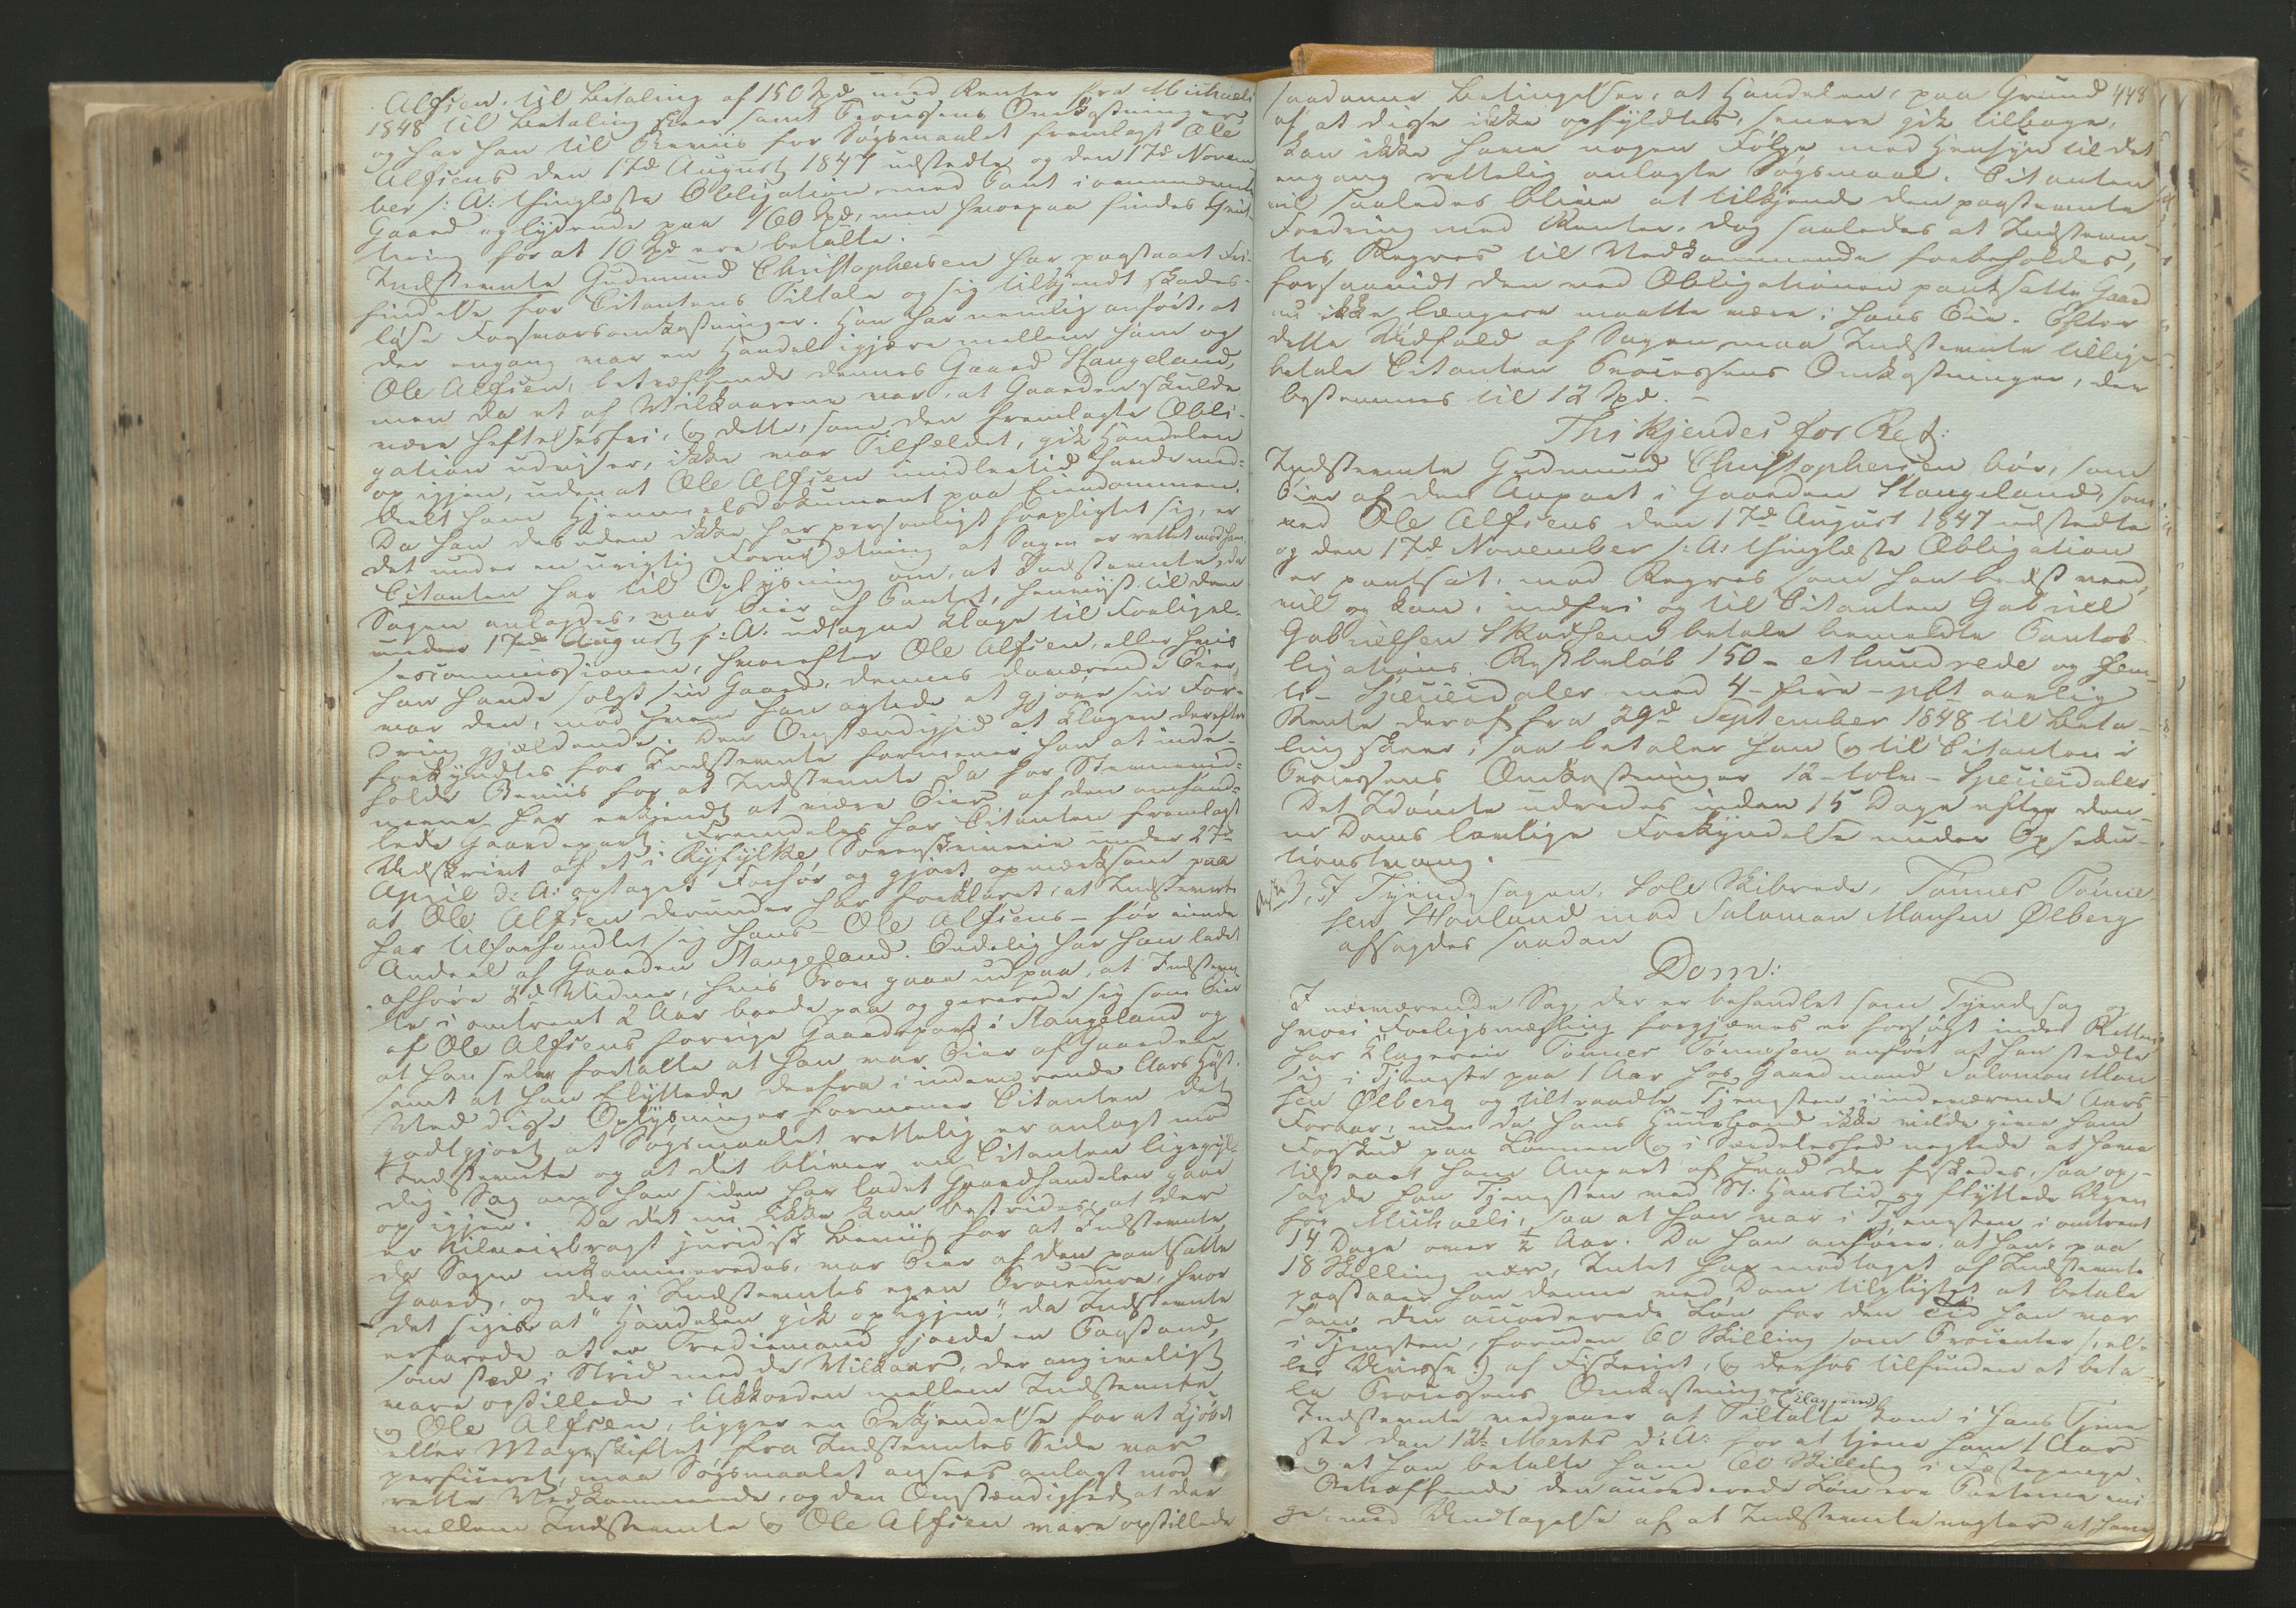 Alfsen, til Betaling af 150 Spd med Renter fra Michaeli
1848 til Betaling skeer samt Processens Omkostninger
og har han til Beviis for Søgsmaalet fremlagt Ole
Alfsens den 17d August 1847 udstedte og den 17d Novem
ber s: A: thinglæste Obligation med Pant i ovennævnte
Gaard og lydende paa 160 Spd, men hvorpaa findes Qvit
tering for at 10 Spd ere betalte. –
Indstevnte Gudmund Christophersen har paastaaet Fri-
findelse for Citantens Tiltale og sig tilkjendt skades-
løse Forsvarsomkostninger. Han har nemlig anført, at
der engang var en Handel igjære mellem ham og
Ole Alfsen, betræffende dennes Gaard Stangeland,
men da et af Vilkaarene var, at Gaarden skulde
være heftelsesfri, og dette, som den fremlagte Obli-
gation udviser, ikke var Tilfældet, gik Handelen
op igjen, uden at Ole Alfsen imidlertid havde med-
deelt ham Hjemmelsdokument paa Eiendommen.
Da han desuden ikke har personligt forpligtet sig, er
det under en urigtig Forudsætning at Sagen er rettet mod ham.
Citanten har til Oplysning om, at Indstevnte, da
Sagen anlagdes, var Eier af Pantet, henviist til den
under 17de August f: A: udtagne Klage til Forligel-
sescommissionen, hvorefter Ole Alfsen, eller hvis
han havde solgt sin Gaard, dennes daværende Eier
var den, mod hvem han agtede at gjøre sin For-
dring gjældende. Den Omstændighed at Klagen derefter
forkyndtes for Indstevnte formener han at inde-
holde Beviis for at Indstevnte da for Stevnevid-
nerne har erkjendt at være Eier af den omhand-
lede Gaardepart. Fremdeles har Citanten fremlagt
Udskrivt af et i Ryfylke Sorenskriverie under 27de
April d: A: optaget Forhør og gjort opmærksom paa
at Ole Alfsen derunder har forklaret, at Indstevnte
har tilforhandlet sig hans – Ole Alfsens – før eiende
Andeel af Gaarden Stangeland. Endelig har han ladet
afhøre 2de Vidner, hvis Prov gaae ud paa, at Indstevn
te i omtrent 2 Aar boede paa og gererede sig som Eier
af Ole Alfsens forrige Gaardepart i Stangeland og
at han selv fortalte at han var Eier af Gaarden
samt at han flyttede derfra i indeværende Aars Høst.
Med disse Oplysninger formener Citanten det
godtgjort at Søgsmaalet rettelig er anlagt mod
Indstevnte og at det bliver en Citanten ligegyl-
dig Sag om han siden har ladet Gaardhandelen gaae
op igjen. Da det nu ikke kan bestrides, at der
er tilveiebragt juridisk Beviis for at Indstevnte
da Sagen inkamineredes, var Eier af den pantsatte
Gaard, og der i Indstevntes egen Procedure, hvor
det siges at "Handelen gik op igjen", da Indstevnte
erfarede at en Trediemand gjorde en Paastand,
som stod i Strid med de Vilkaar, der angiveligt
vare opstillede i Akkorden mellem Indstevnte
og Ole Alfsen, ligger en Erkjendelse for at Kjøbet
eller Mageskiftet fra Indstevntes Side var
perficeret, maa Søgsmaalet ansees anlagt mod
rette Vedkommende, og den Omstændighed at der
mellem Indstevnte og Ole Alfsen vare opstillede
448
saadanne Betingelser, at Handelen, paa Grund
af at disse ikke opfyldtes, senere gik tilbage,
kan ikke have nogen Følge med Hensyn til det
engang rettelig anlagte Søgsmaal. Citanten
vil saaledes blive at tilkjende den paastevnte
Fordring med Renter, dog saaledes at Indstevn-
tes Regres til Vedkommende forbeholdes,
forsaavidt den ved Obligationen pantsatte Gaard
nu ikke længere maatte være i hans Eie. Efter
dette Udfald af Sagen maa Indstevnte tillige
betale Citanten Processens Omkostninger, der
bestemmes til 12 Spd. –
Thi Kjendes for Ret:
Indstevnte Gudmund Christophersen bør, som
Eier af den Anpart i Gaarden Stangeland, som
ved Ole Alfsens den 17de August 1847 udstedte
og den 17d November s: A: thinglæste Obligation
er pantsat, med Regres som han bedst veed,
vil og kan, indfri og til Citanten Gabriel
Gabrielsen Skadsem betale bemeldte Pantob-
ligations Restbeløb 150 – et hundrede og fem-
ti – Speciesdaler med 4 – fire – pCt aarlig
Rente deraf fra 29de September 1848 til Beta-
ling skeer; saa betaler han og til Citanten i
Processens Omkostninger 12 – tolv – Speciesdaler.
Det Idømte udredes inden 15 Dage efter den-
ne Doms lovlige Forkyndelse under Execu-
tionstvang. –
3, I Tyendesagen, Sole Skibrede, Tønnes Tønne-
sen Hovland mod Salomon Monsen Ølberg
afsagdes saadan
Dom:
I nærværende Sag der er behandlet som Tyendesag og
hvori Forligsmægling forgjæves er forsøgt inden Retten,
har Klageren Tønnes Tønnesen anført at han stedte
sig i Tjeneste paa 1 Aar hos Gaardmand Salomon Mon
sen Ølberg og tiltraadte Tjenesten i indeværende Aars
Foraar; men da hans Huusbond ikke vilde give ham
Forskud paa Lønnen og i Særdeleshed negtede at have
tilstaaet ham Anpart af hvad der fiskedes, saa op-
sagde han Tjenesten ved St: Hanstid og flyttede igjen
før Michaeli, saa at han var i Tjenesten i omtrent
14 Dage over ½ Aar. Da han anfører, at han, paa
18 Skilling nær, Intet har modtaget af Indstevnte
paastaaer han denne ved Dom tilpligtet at betale
ham den accorderede Løn for den Tid han var
i Tjenesten, foruden 60 Skilling som Procenter (: el-
ler :) af Fiskeriet, og derhos tilfunden at beta-
le Processens Omkostninger.
Indstevnte vedgaaer at Tiltalte (Klageren) kom i hans Tjene
ste den 12te Marts d: A: for at tjene ham 1 Aar
og at han betalte ham 60 Skilling i Fæstepenge.
Betræffende den accorderede Løn ere Parterne eni-
ge, med Undtagelse af at Indstevnte negter at have